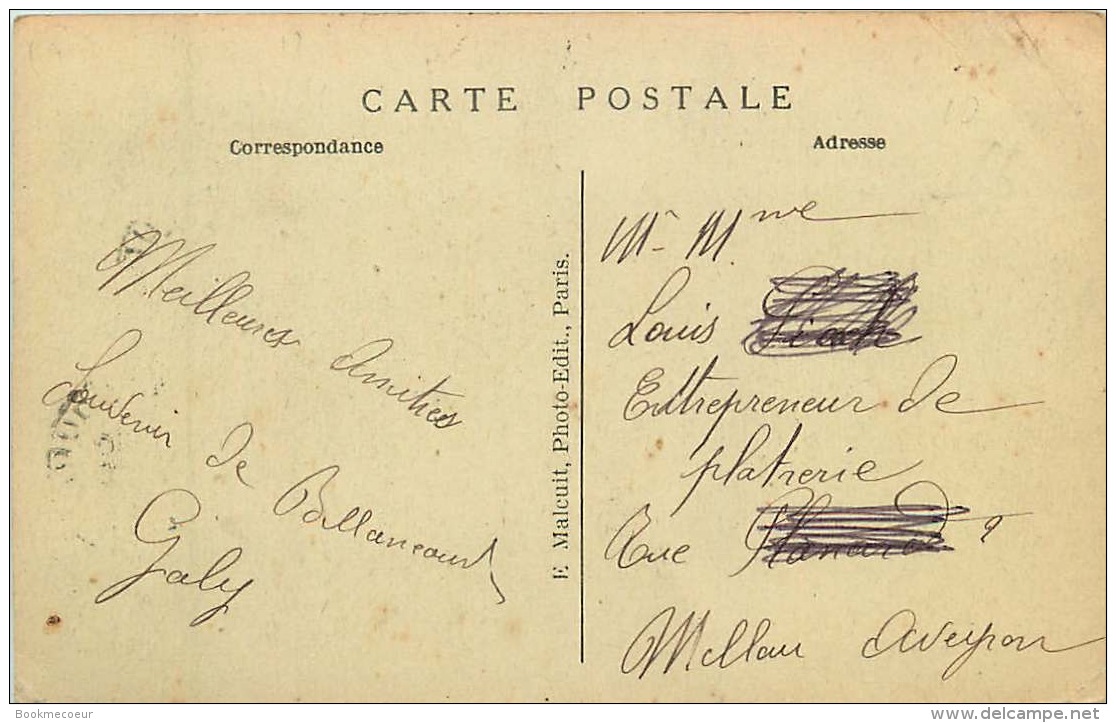 CARTE POSTALE
Correspondance
Adresse
Meilleures Amities
Souvenir de Billancourt
Galy
E. Malcuit, Photo-Edit., Paris.
Mr Mme
Louis
Entrepreneur de
platrerie
Rue
Millau Aveyron
Bookmecoeur
www.delcampe.net